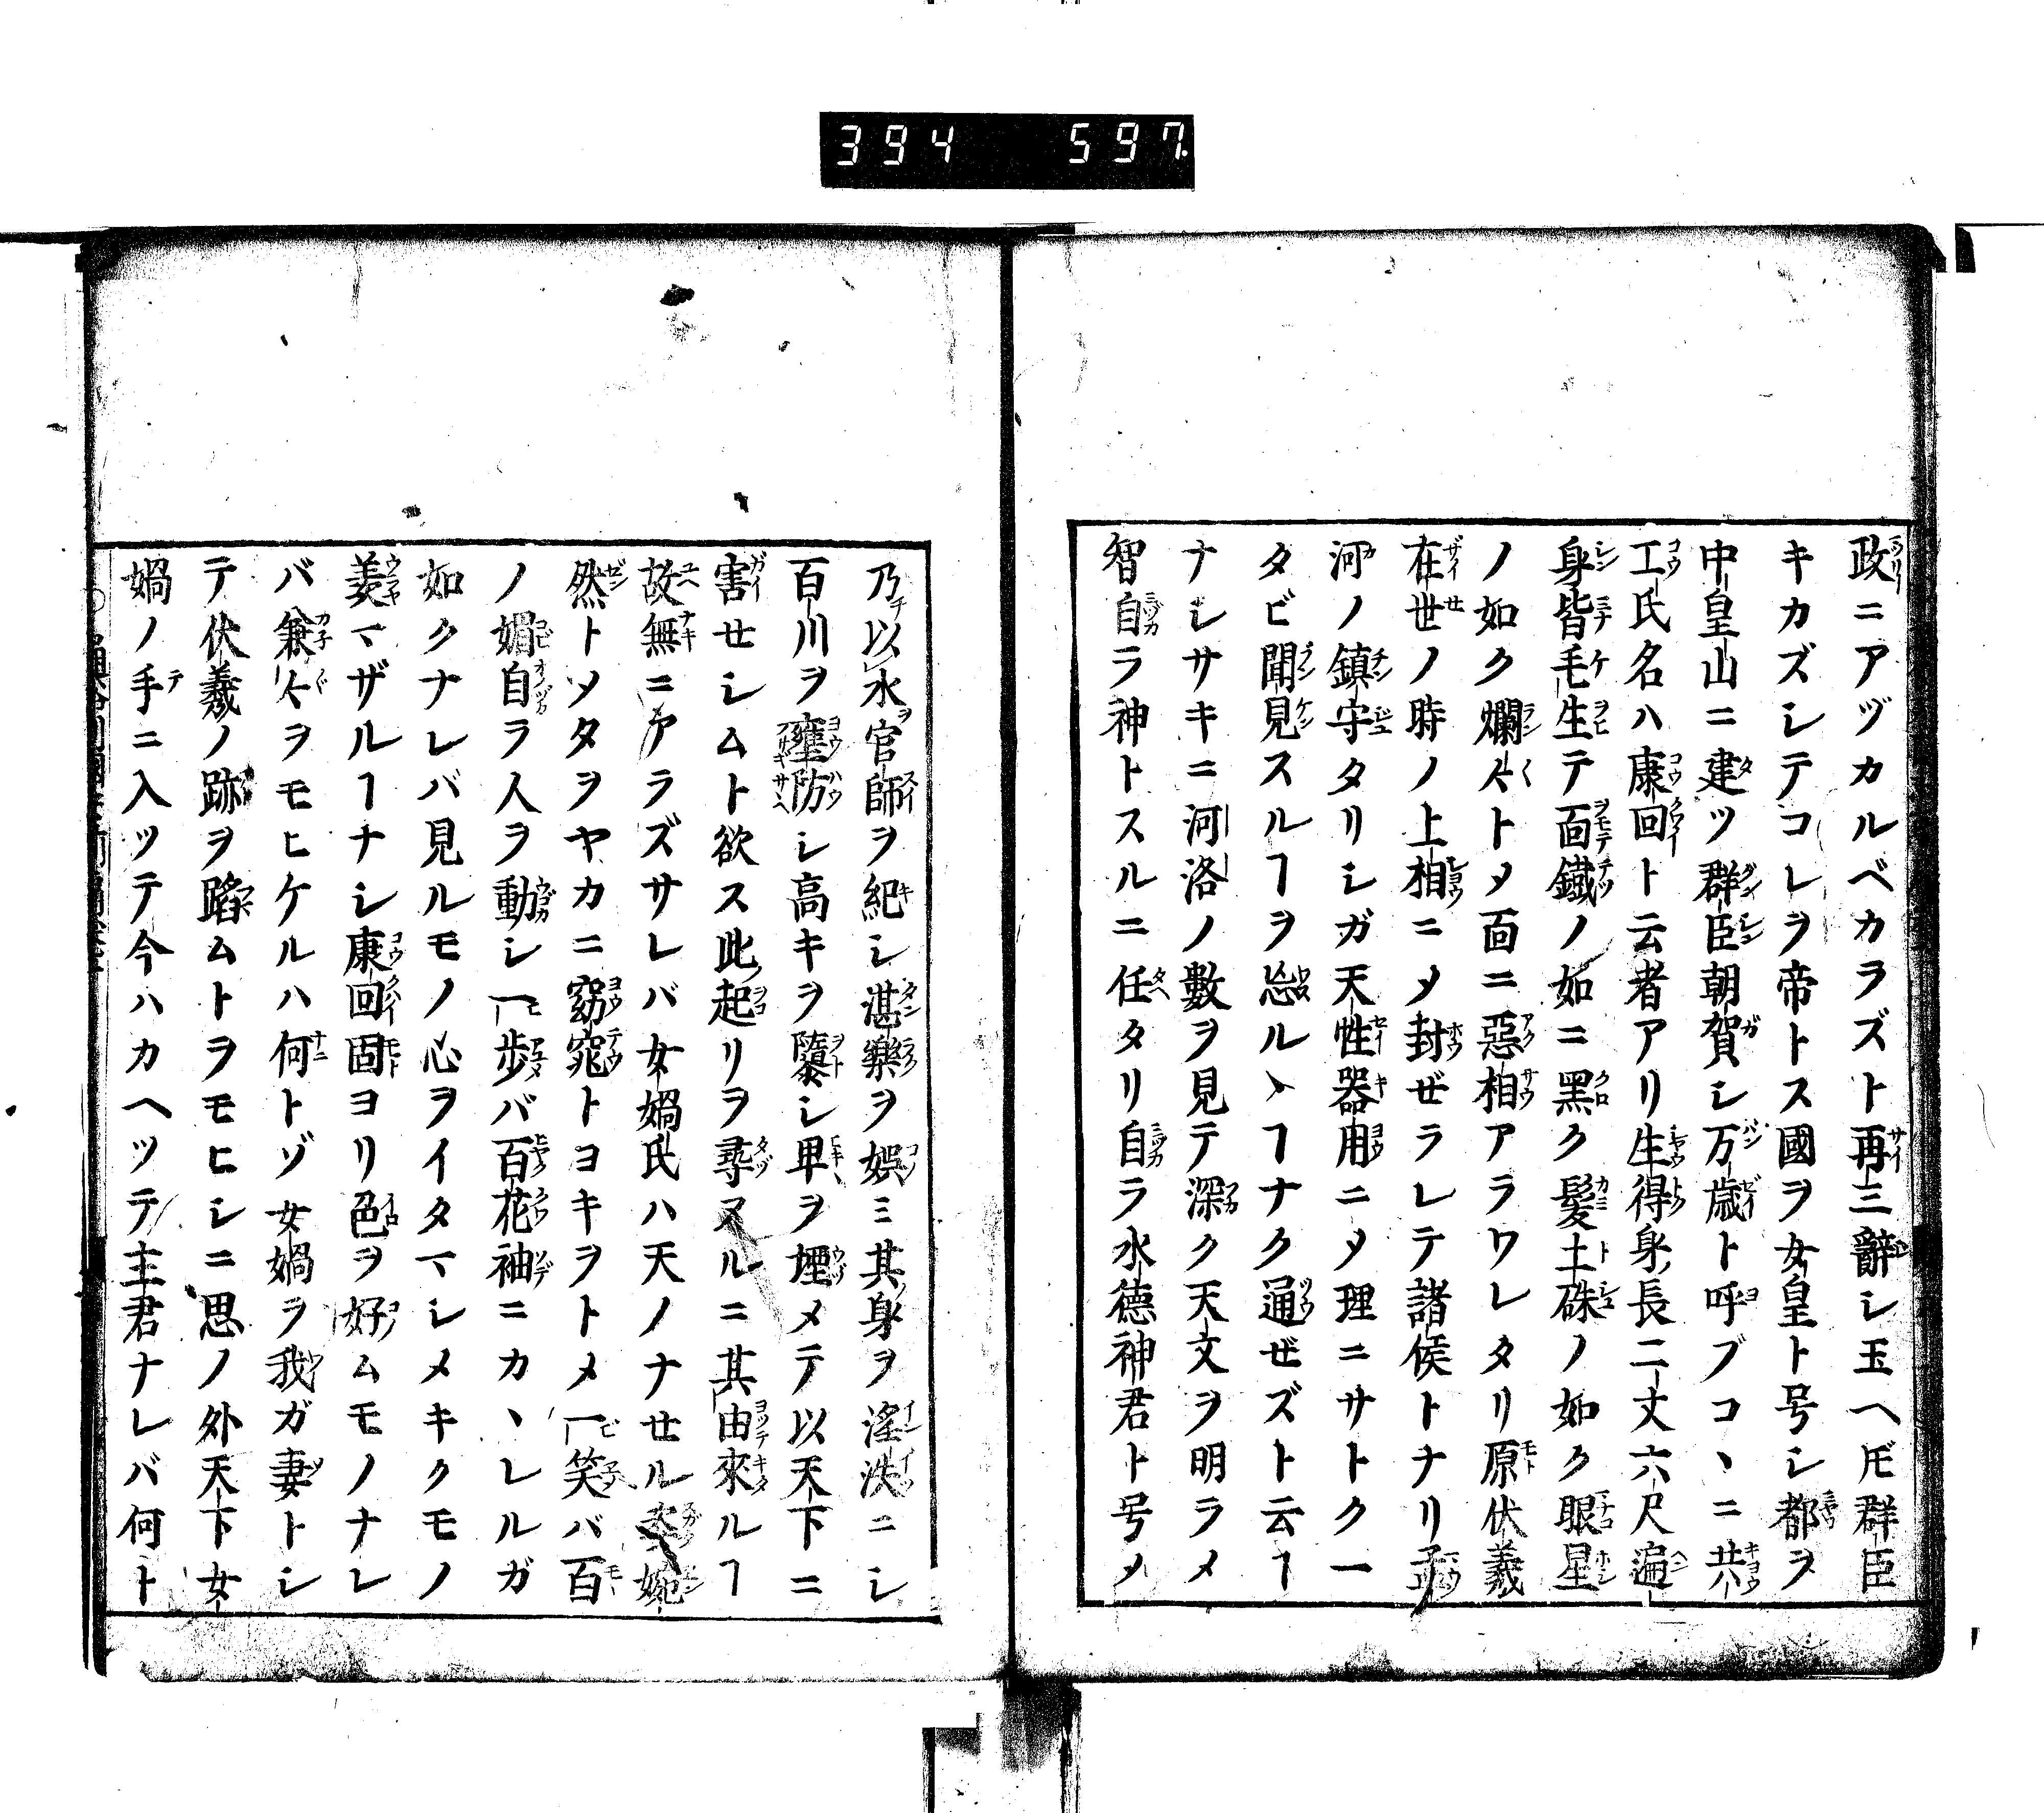 394 597
政ニアヅカルベカラズト再三辭シ玉ヘ𪜈群臣
キカズシテコレヲ帝トス國ヲ女皇ト号シ都ヲ
中皇山ニ建ツ群臣朝賀シ万歳ト呼ブコヽニ共
工氏名ハ康回ト云者アリ生得身長二丈六尺遍
身皆毛生テ面鐵ノ如ニ黑ク髮土硃ノ如ク眼星
ノ如ク爛々トメ面ニ惡相アラワレタリ原伏羲
在世ノ時ノ上相ニメ封ゼラレテ諸侯トナリ孟
河ノ鎮守タリシガ天性器用ニメ理ニサトク一
タビ聞見スルヿヲ忘ルヽヿナク通ゼズト云ヿ
ナシサキニ河洛ノ數ヲ見テ深ク天文ヲ明ラメ
智自ラ神トスルニ任タリ自ラ水德神君ト号メ
乃以水官師ヲ紀シ湛樂ヲ娯ミ其身ヲ淫泆ニシ
百川ヲ壅防シ高キヲ隳シ卑ヲ堙メテ以天下ニ
害セシムト欲ス此起リヲ尋ヌルニ其由來ルヿ
故無ニアラズサレバ女媧氏ハ天ノナセル
然トメタヲヤカニ窈窕トヨキヲトメ一笑バ百
ノ媚自ラ人ヲ動シ一步バ百花袖ニカヽレルガ
如クナレバ見ルモノ心ヲイタマシメキクモノ
羨マザルヿナシ康回固ヨリ色ヲ好ムモノナレ
バ兼々ヲモヒケルハ何トゾ女媧ヲ我ガ妻トシ
テ伏羲ノ跡ヲ蹈ムトヲモヒシニ思ノ外天下女
媧ノ手ニ入ッテ今ハカヘッテ主君ナレバ何ト